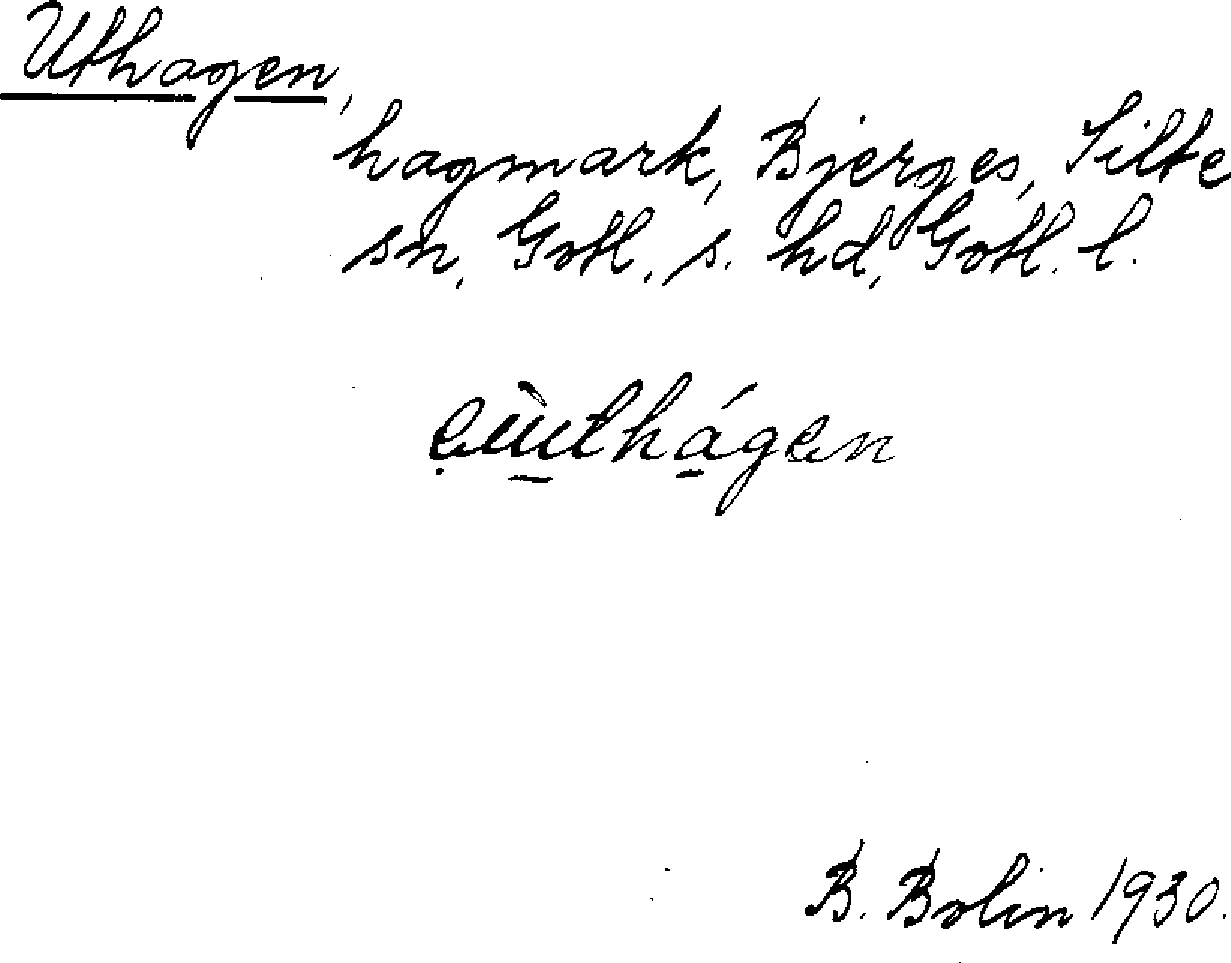 Uthagen,
hagmark, Bjerges, Silte
sn, Gotl. s. hd, Gotl. l.
B. Bolin 1930.